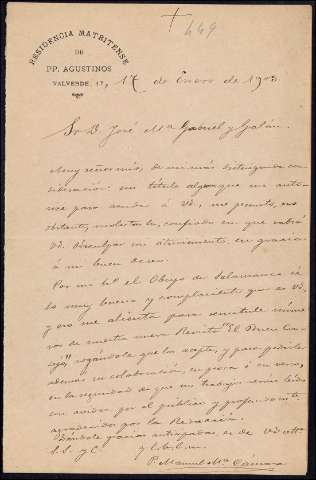 449
RESIDENCIA MATRITENSE
DE
PP. AGUSTINOS
VALVERDE, 17, 17 de Enero de 1903
Sr. D. José Mª Gabriel y Galán.
Muy señor mío, de mi más distinguida con
sideración: sin título alguno que me auto
rice para acudir á Vd., me permito, no
obstante, molestarle, confiado en que sabrá
Vd. disculpar mi atrevimiento, en gracia
á mi buen deseo.
Por mi el Obispo de Salamanca sé
lo muy bueno y complaciente que es Vd,
y eso me alienta para remitirle núme
ros de nuestra nueva Revista "El Buen Con
sejo", rogándole que los acepte, y para pedirle
además su colaboración, en prosa ó en verso,
en la seguridad de que sus trabajos serán leídos
con avidez por el público y profundamte.
agradecidos por la Redacción.
Dándole gracias anticipadas es de Vd
S. S. y C.
P. Manuel Mª Cámara